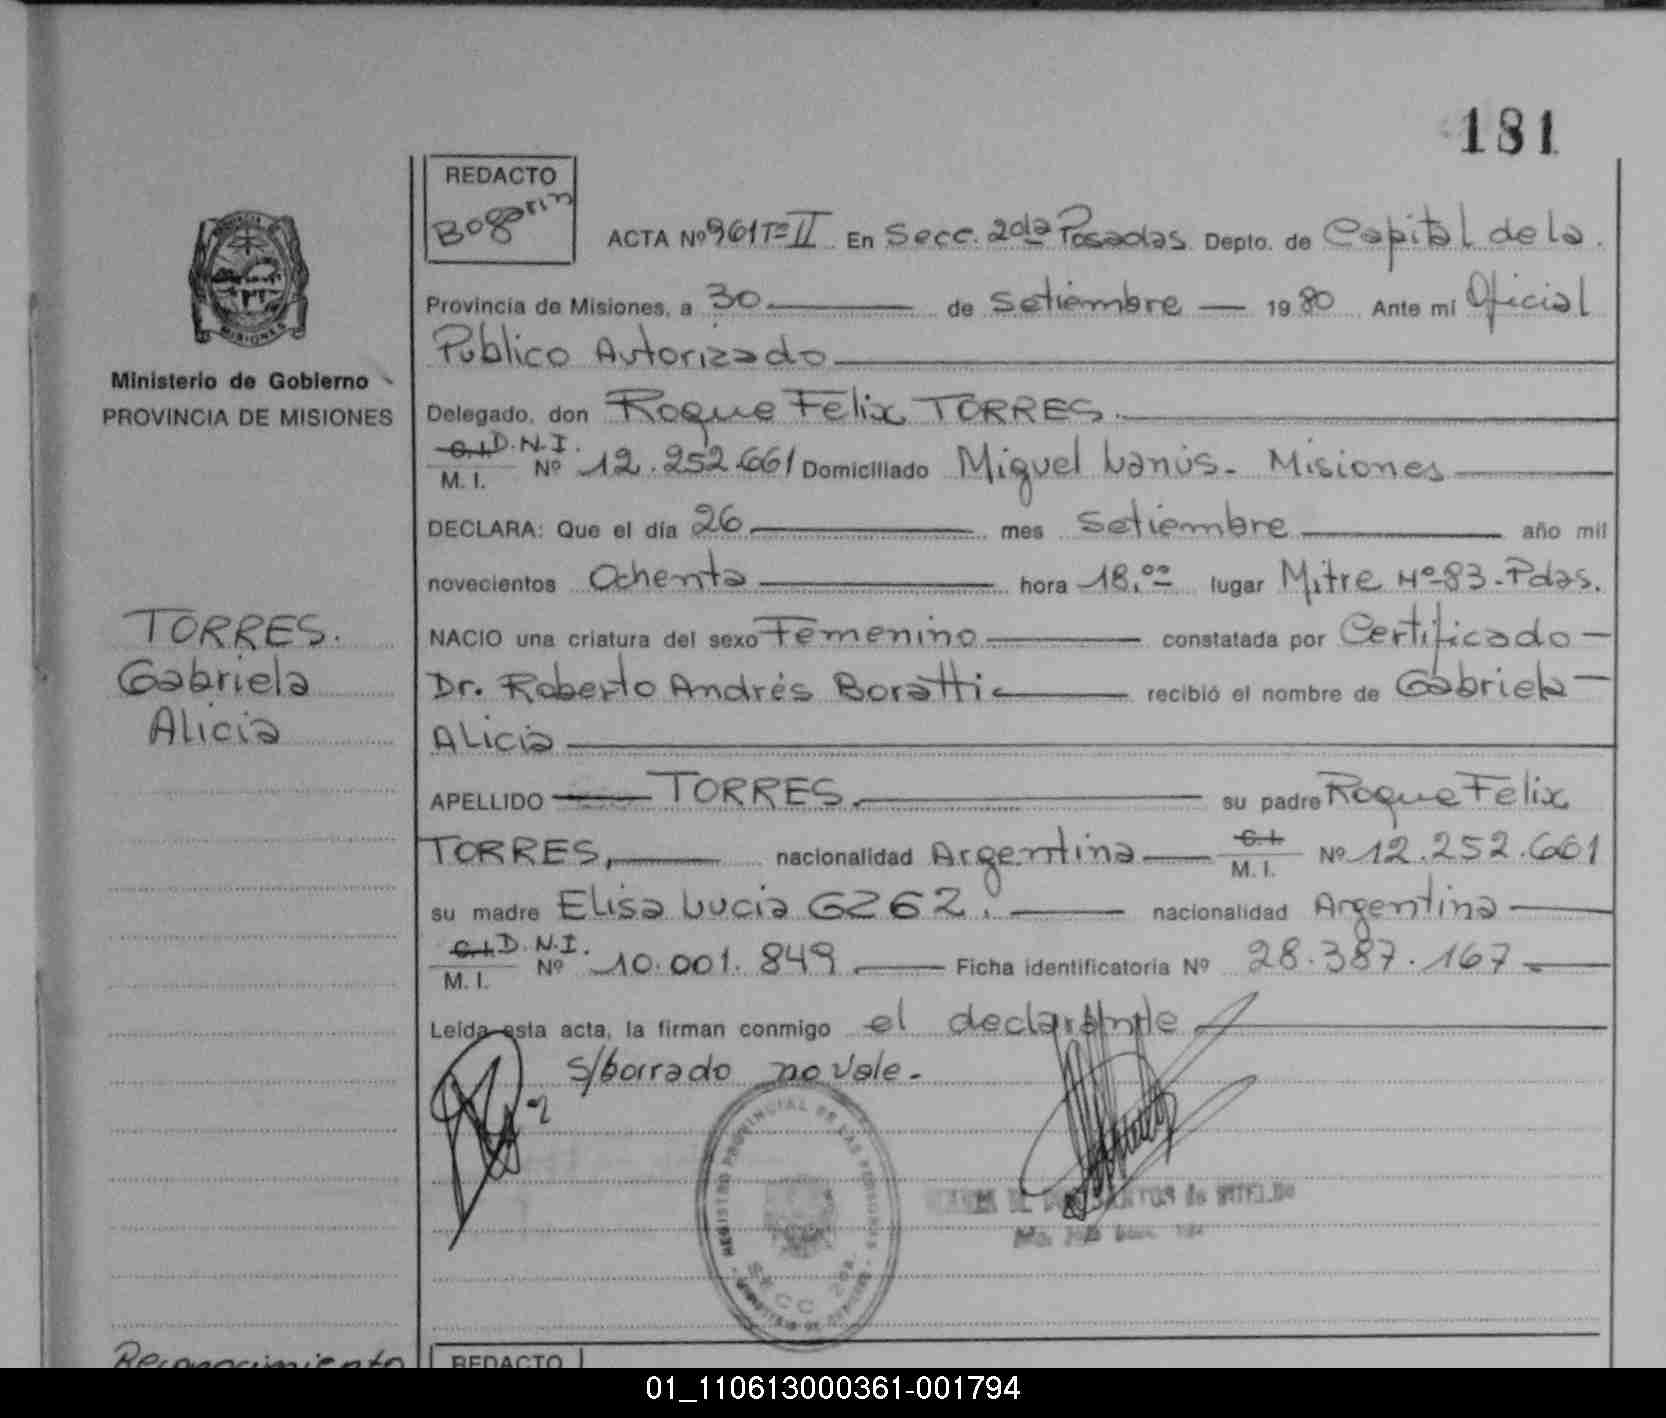 181
REDACTO
Bogarin
ACTA Nº 961 Tº II En Secc. 2da Posadas Depto. de Capital de la
Provincia de Misiones, a 30 de Setiembre 1980 Ante mi Oficial
Público Autorizado
Ministerio de Gobierno
PROVINCIA DE MISIONES
Delegado, don Roque Felix TORRES.
C.I. D.N.I.
M. I. Nº 12.252.661 Domiciliado Miguel Lanús - Misiones
DECLARA: Que el día 26 mes Setiembre año mil
novecientos Ochenta hora 18,00 lugar Mitre Nº 83 - Pdas.
TORRES.
Gabriela
Alicia
NACIO una criatura del sexo Femenino constatada por Certificado
Dr. Roberto Andrés Boratti recibió el nombre de Gabriela
Alicia
APELLIDO TORRES. su padre Roque Felix
TORRES, nacionalidad Argentina C.I. M. I. Nº 12.252.661
su madre Elisa Lucia nacionalidad Argentina
C.I. D.N.I.
M. I. Nº 10.001.849 Ficha identificatoria Nº 28.387.167
Leída esta acta, la firman conmigo el declarante
s/borrado no vale.
REGISTRO PROVINCIAL DE LAS PERSONAS
SECC 2da.
Reconocimiento
REDACTO
01_110613000361-001794